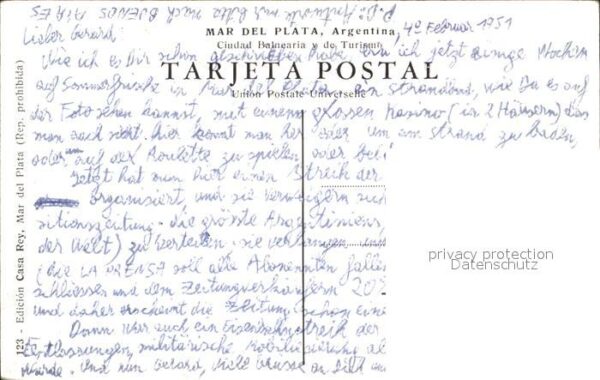 P.D. Antworte mir bitte nach BUENOS AIRES
4º Februar 1951
MAR DEL PLATA, Argentina
Ciudad Balnearia y de Turismo
TARJETA POSTAL
Union Postale Universelle
123 - Edición Casa Rey, Mar del Plata (Rep. prohibida)
Lieber Gerard!
Wie ich es Dir schon geschrieben habe bin ich jetzt einige Wochen
auf Sommerfrische in Mar del Plata, ein Strandbad, wie Du es auf
der Foto sehen kannst, mit einem grossen Kasino (in 2 Häusern) das
man auch sieht. Hier kommt man her oder um am Strand zu baden,
oder auf der Roulette zu spielen, oder bei
Jetzt hat man hier einen Streik der
organisiert, und sie verweigern sich
sitionszeitung - die grösste Argentiniens,
der Welt) zu verteilen. Sie verlangen und
(die LA PRENSA soll alle Abonennten
schliessen und dem Zeitungsverkäufern 20%
und daher erscheint die Zeitung schon eine
Dann war auch ein Eisenbahnstreik der
Entlassungen, militärische Mobilisierung
wurde. Und nun Gerard, viele Grüsse an Dich und
privacy protection
Datenschutz